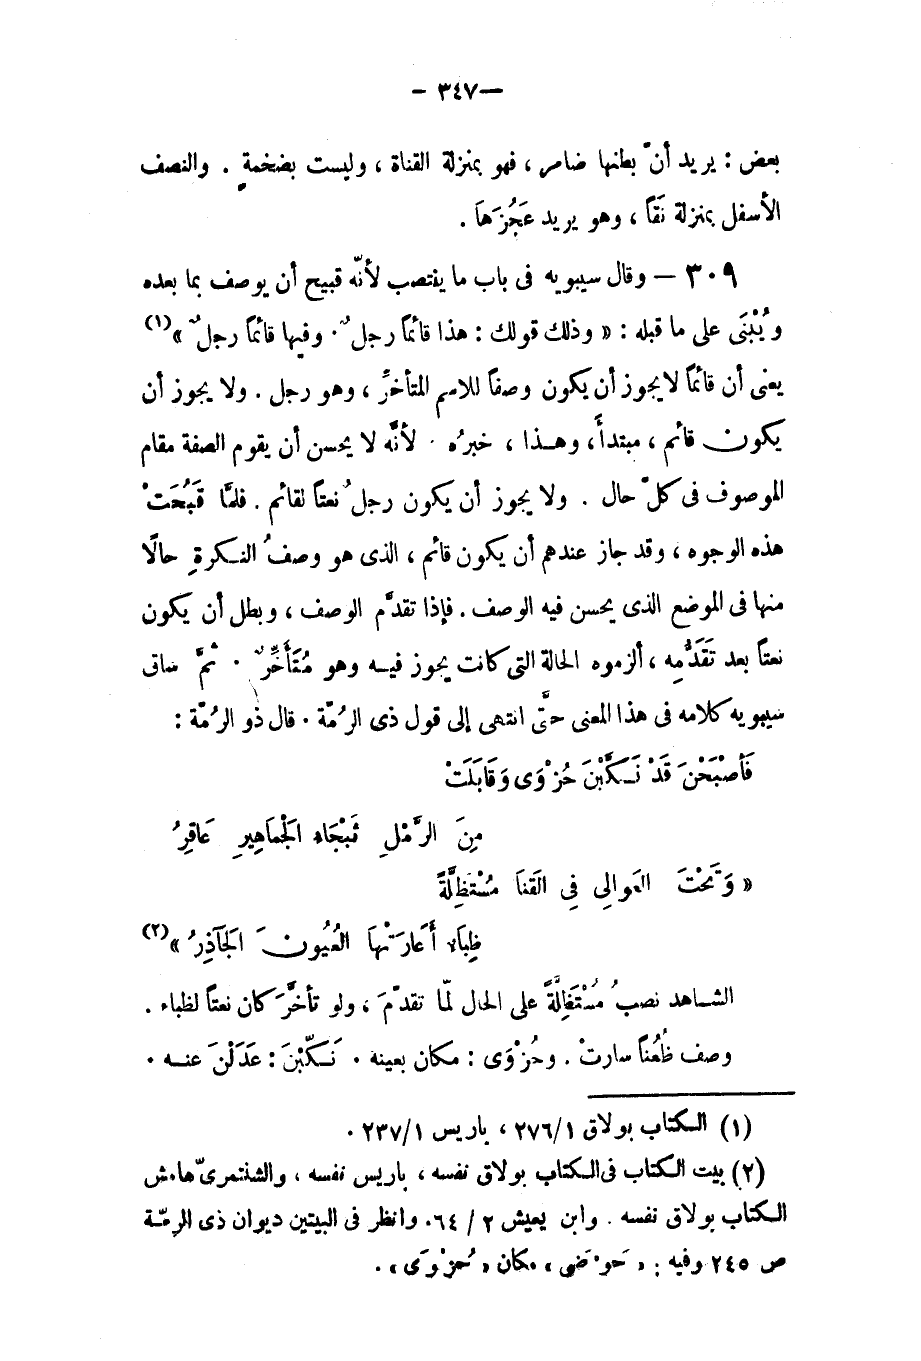 — ٣٤٧ —
بعض : يريد أنّ بطنها ضامر ، فهو بمنزلة القناة ، وليست بضخمةٍ . والنصف
الأسفل بمنزلة نَقًا ، وهو يريد عَجُزَهَا .
٣٠٩ — وقال سيبويه فى باب ما ينتصب لأنّه قبيح أن يوصف بما بعده
ويُبْنَى على ما قبله : « وذلك قولك : هذا قائمًا رجلٌ . وفيها قائمًا رجلٌ » (١)
يعنى أن قائمًا لا يجوز أن يكون وصفًا للاسم المتأخرِّ ، وهو رجل . ولا يجوز أن
يكون قائم ، مبتدأً ، وهذا ، خبرُه . لأنَّه لا يحسن أن يقوم الصفة مقام
الموصوف فى كلّ حال . ولا يجوز أن يكون رجلُ نعتًا لقائم . فلمَّا قَبُحَتْ
هذه الوجوه ، وقد جاز عندهم أن يكون قائم ، الذى هو وصفُ النكرةِ حالًا
منها فى الموضع الذى يحسن فيه الوصف . فإذا تقدَّم الوصف ، وبطل أن يكون
نعتًا بعد تَقَدُّمِه ، ألزموه الحالة التى كانت يجوز فيه وهو مُتَأَخِّرٌ . ثمَّ ساق
سيبويه كلامه فى هذا المعنى حتَّى انتهى إلى قول ذى الرُمّة . قال ذو الرُمّة :
فَأَصْبَحْنَ قَدْ نَكَّبْنَ حُزْوَى وَقَابَلَتْ
مِنَ الرَّمْلِ ثَبْجَاءِ الْجَمَاهِيرِ عَاقِرُ
« وَتَحْتَ العَوالِى فِى القَنَا مُسْتَظِلَّةً
ظِبَاء أَعَارَتْهَا العُيُونَ الجَآذِرُ » (٢)
الشاهد نصبُ مُسْتَظِلَّةً على الحال لمّا تقدّمَ ، ولو تأخَّرَ كان نعتًا لظباء .
وصف ظُعُنًا سارتْ . وحُزْوَى : مكان بعينه . نَكَّبْنَ : عَدَلْنَ عنه .
(١) الكتاب بولاق ١/٢٧٦ ، باريس ١/٢٣٧ .
(٢) بيت الكتاب فى الكتاب بولاق نفسه ، باريس نفسه ، والشنتمرىّ هامش
الكتاب بولاق نفسه . وابن يعيش ٢ / ٦٤. وانظر فى البيتين ديوان ذى الرمّة
ص ٢٤٥ وفيه : « حَوْضَى » مكان « حُزْوَى » .